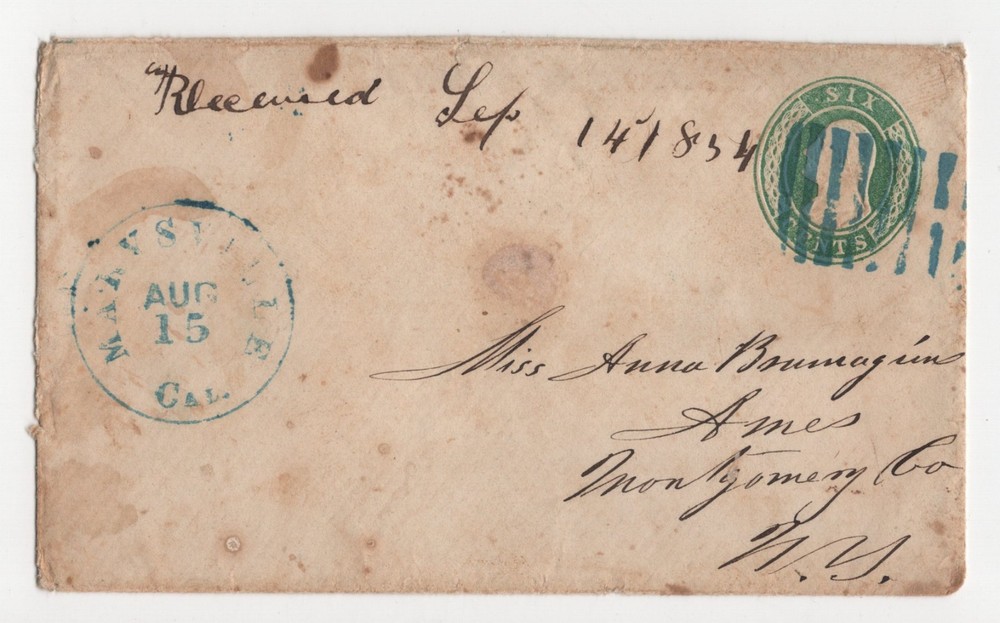 Received Sep 14 1854
SIX
CENTS
MARYSVILLE
AUG
15
CAL.
Miss Anna Brumagim
Ames
Montgomery Co
N.Y.